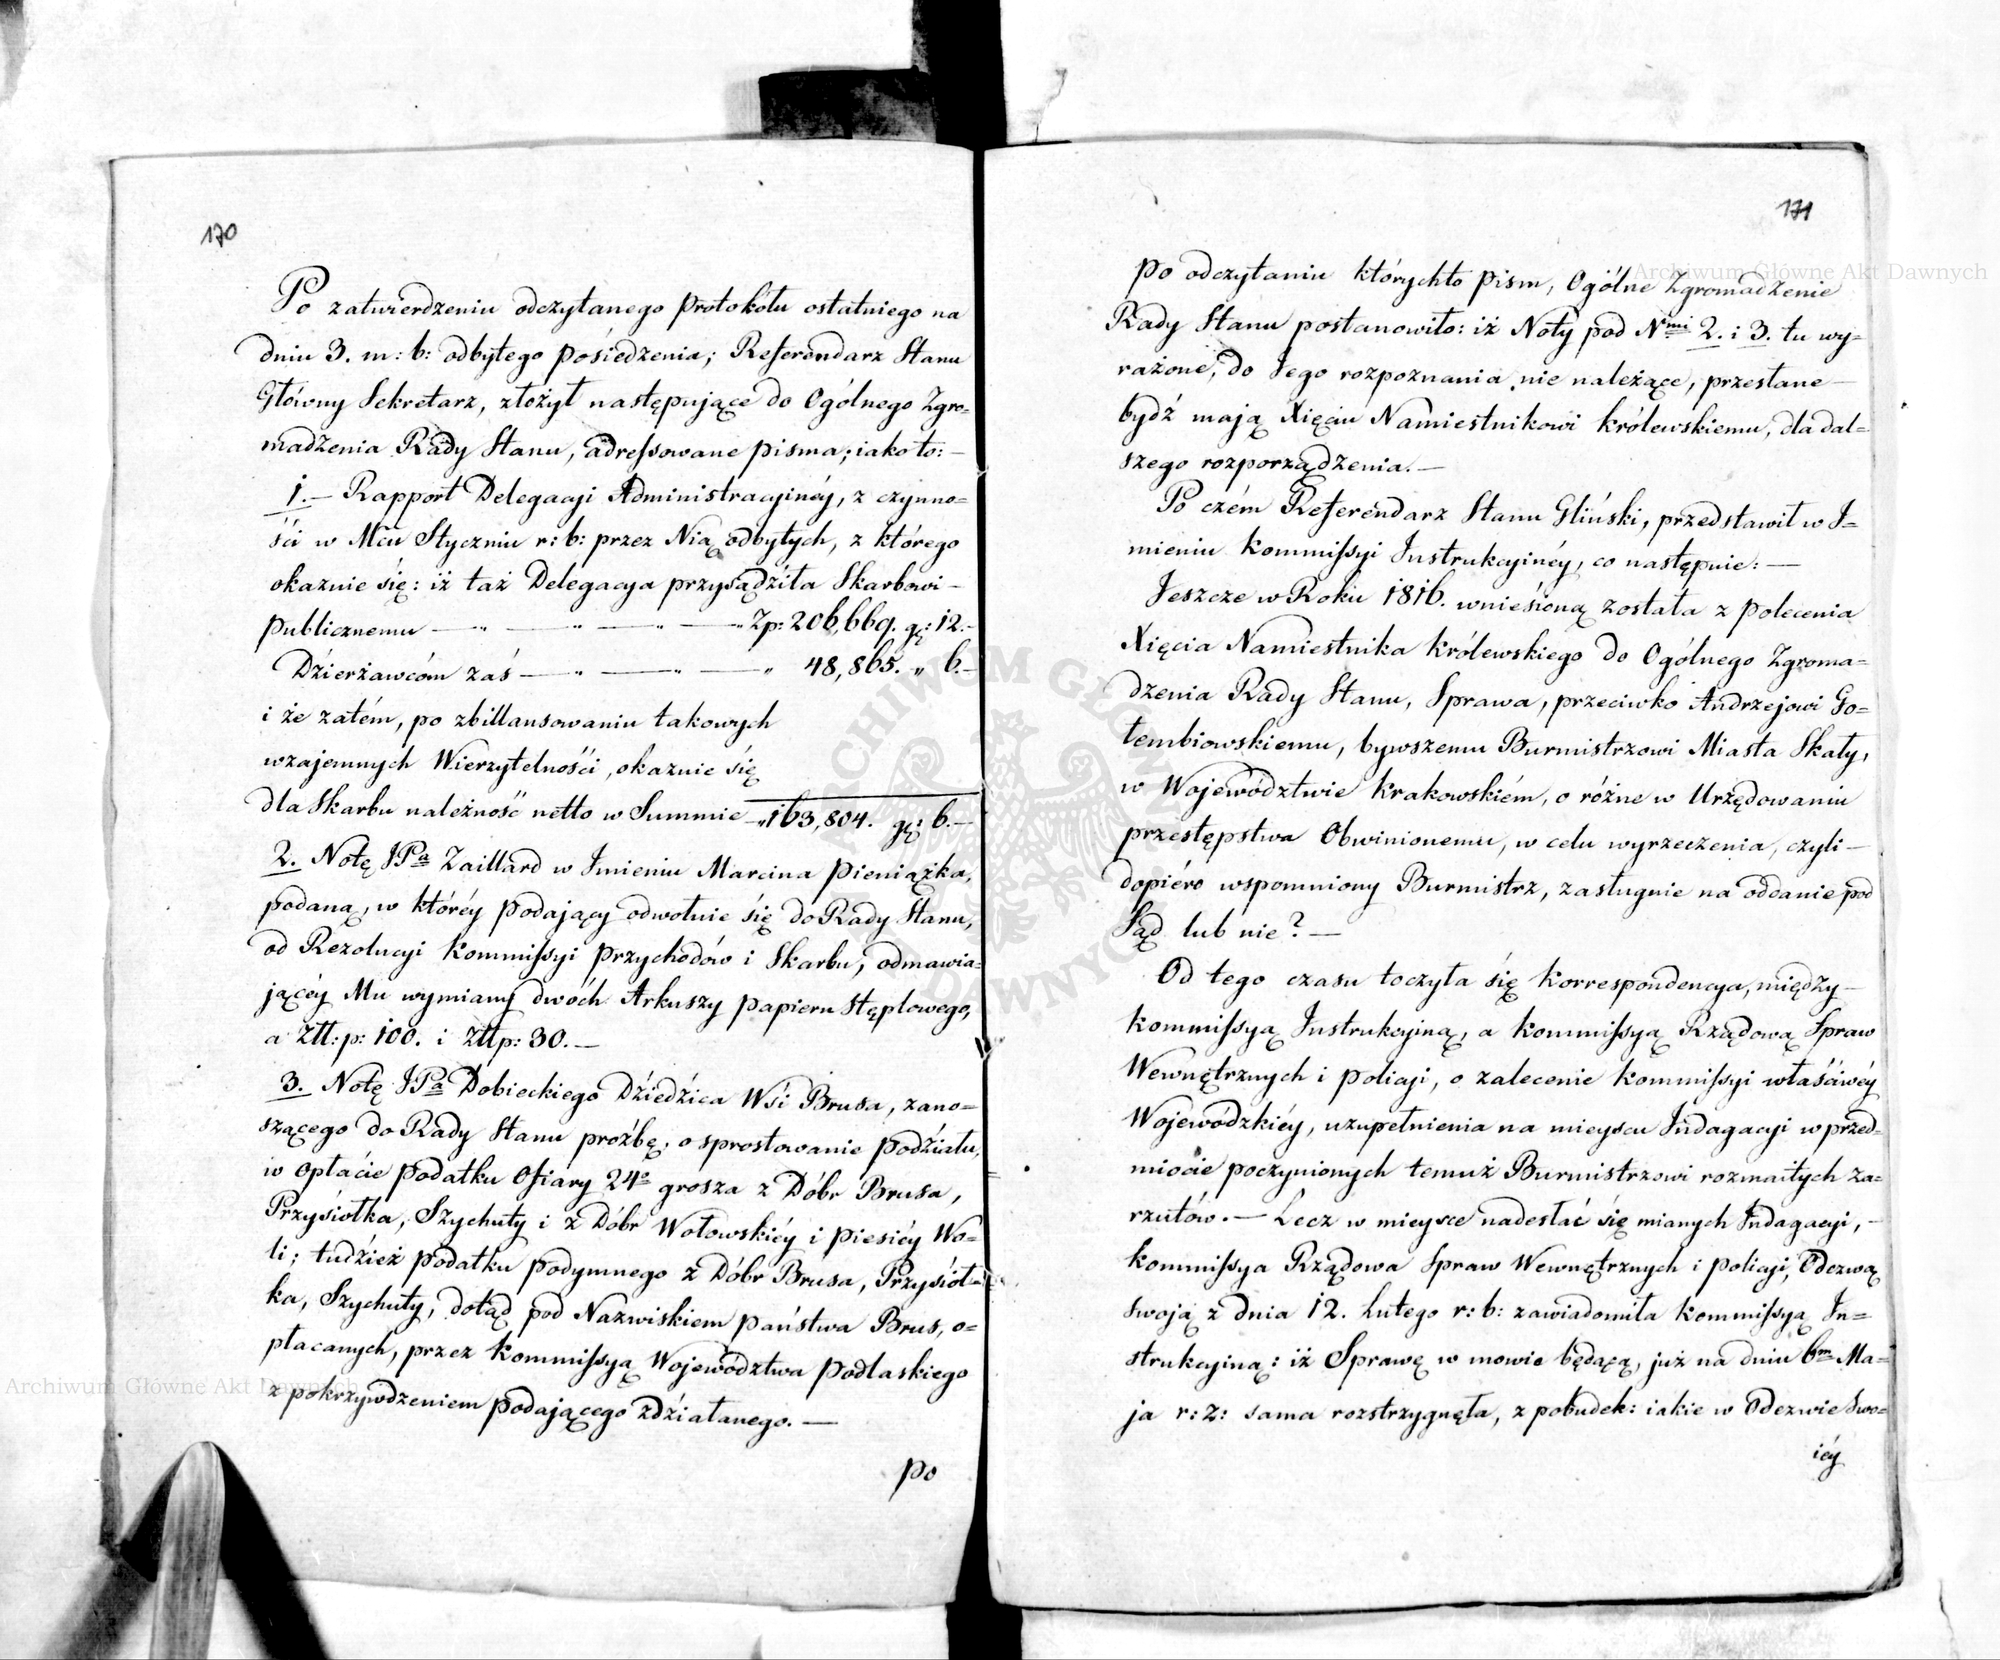 170
Po zatwierdzeniu odczytanego Protokółu ostatniego na
dniu 3. m: b: odbytego posiedzenia; Referendarz Stanu
Główny Sekretarz, złożył następujące do Ogólnego Zgro-
madzenia Rady Stanu, adressowane pisma; iako to: —
1. — Rapport Delegacyi Administracyinéy, z czynno-
ści w Mcu Styczniu r: b: przez Nią odbytych, z którego
okazuie się: iż taż Delegacya przysądziła Skarbowi —
publicznemu — „ — „ — „ — „ Zp: 206,669. gr: 12. —
Dzierżawcóm zaś — „ — „ — „ 48,865. „ 6. —
i że zatém, po zbillansowaniu takowych
wzajemnych Wierzytelności, okazuie się
dla Skarbu należność netto w Summie — „ 163,804. gr: 6. —
2. Notę JPa Zaillard w Imieniu Marcina Pieniążka,
podaną, w któréy podający odwołuie się do Rady Stanu,
od Rezolucyi Kommissyi Przychodów i Skarbu, odmawia-
jącéy Mu wymiany dwóch Arkuszy papieru stęplowego,
a Ztt: p: 100. i Zttp: 30. —
3. Notę JPa Dobieckiego Dziedzica Wsi Brusa, zano-
szącego do Rady Stanu proźbę, o sprostowanie podziału,
w opłacie podatku Ofiary 24o grosza z Dóbr Brusa,
Przysiółka, Szychuty i z Dóbr Wołowskiéy i Piesiéy Wo-
li; tudzież podatku podymnego z Dóbr Brusa, Przysiół-
ka, Szychuty, dotąd pod Nazwiskiem państwa Brus, o-
płacanych, przez Kommissyą Województwa Podlaskiego
z pokrzywdzeniem podającego zdziałanego. —
po
171
Po odczytaniu którychto pism, Ogólne Zgromadzenie
Rady Stanu postanowiło: iż Noty pod Nmi 2. i 3. tu wy-
rażone, do Jego rozpoznania nie należące, przesłane —
bydź mają Xięciu Namiestnikowi Królewskiemu, dla dal-
szego rozporządzenia. —
Po czém Referendarz Stanu Gliński, przedstawił w I-
mieniu Kommissyi Instrukcyinéy, co następuie: —
Jeszcze w Roku 1816. wniesioną została z polecenia
Xięcia Namiestnika Królewskiego do Ogólnego Zgroma-
dzenia Rady Stanu, Sprawa, przeciwko Andrzejowi Go-
łembiowskiemu, bywszemu Burmistrzowi Miasta Skały,
w Województwie Krakowskiém, o różne w Urzędowaniu
przestępstwa Obwinionemu, w celu wyrzeczenia, czyli —
dopiéro wspomniony Burmistrz, zasługuie na oddanie pod
Sąd lub nie? —
Od tego czasu toczyła się Korrespondencya, między —
Kommissyą Instrukcyiną, a Kommissyą Rządową Spraw
Wewnętrznych i Policyi, o zalecenie Kommissyi właściwéy
Wojewódzkiéy, uzupełnienia na mieyscu Indagacyi w przed-
miocie poczynionych temuż Burmistrzowi rozmaitych za-
rzutów. — Lecz w mieysce nadesłać się mianych Indagacyi, —
Kommissya Rządowa Spraw Wewnętrznych i Policyi, Odezwą
swoją z dnia 12. Lutego r: b: zawiadomiła Kommissyą In-
strukcyiną: iż Sprawę w mowie będącą, już na dniu 6m Ma-
ja r: z: sama rozstrzygnęła, z pobudek: iakie w Odezwie swo-
iéy
Archiwum Główne Akt Dawnych
Archiwum Główne Akt Dawnych
ARCHIWUM GŁÓWNE AKT DAWNYCH